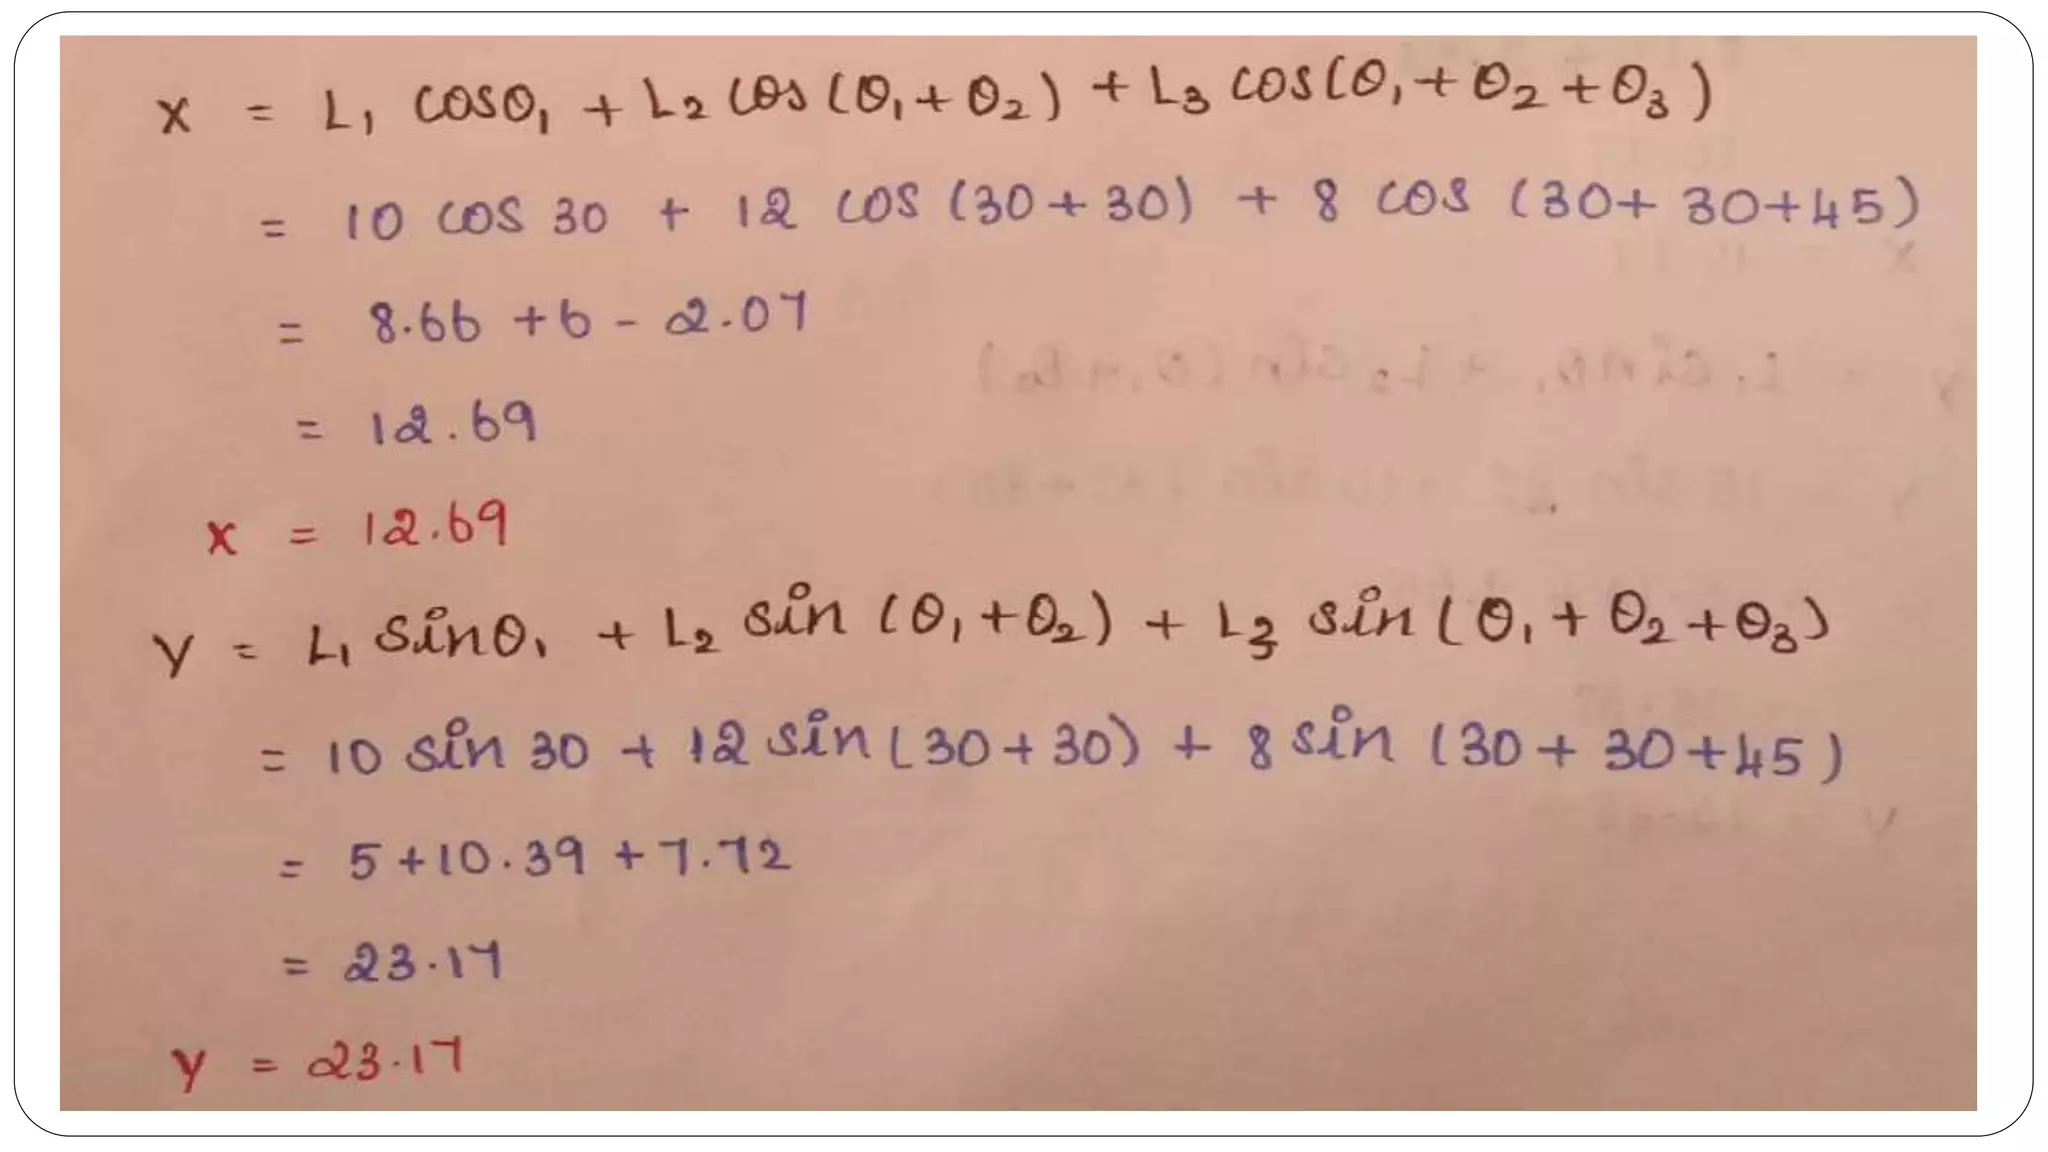 x = L₁ cosθ₁ + L₂ cos (θ₁ + θ₂) + L₃ cos(θ₁ + θ₂ + θ₃)
= 10 cos 30 + 12 cos (30 + 30) + 8 cos (30 + 30 + 45)
= 8.66 + 6 - 2.07
= 12.69
x = 12.69
y = L₁ sinθ₁ + L₂ sin (θ₁ + θ₂) + L₃ sin (θ₁ + θ₂ + θ₃)
= 10 sin 30 + 12 sin (30 + 30) + 8 sin (30 + 30 + 45)
= 5 + 10.39 + 7.72
= 23.17
y = 23.17